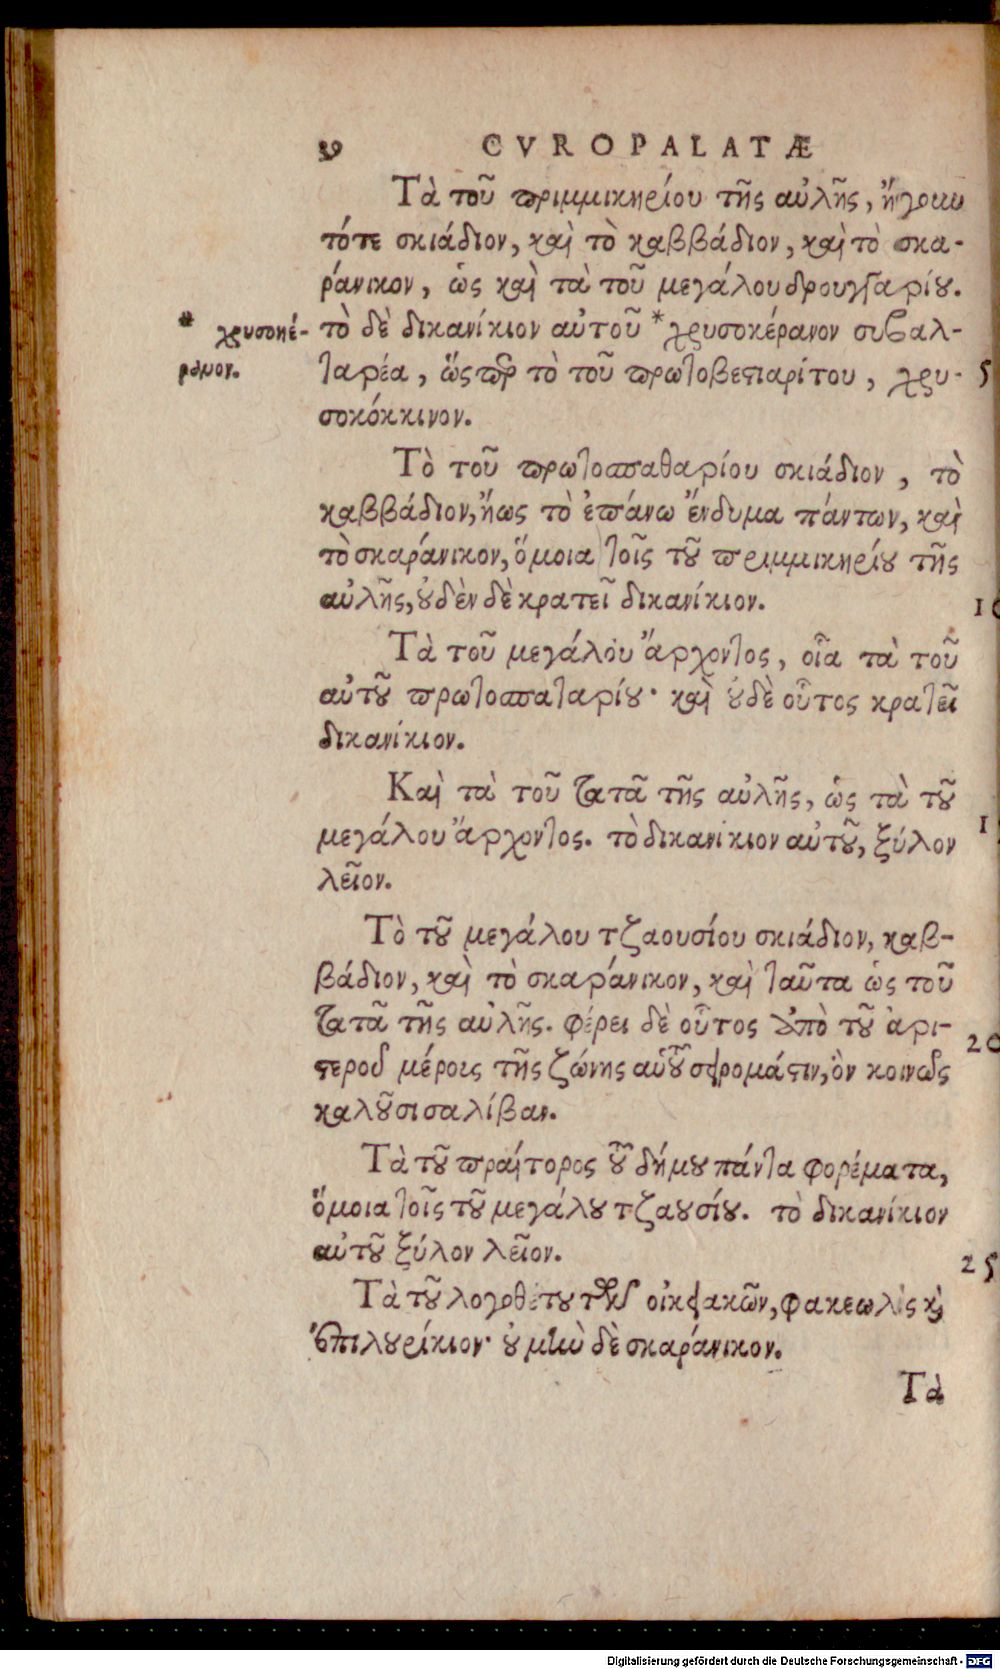 CVROPALATÆ
Τὰ τοῦ πριμμικηρίου τῆς αὐλῆς, ἤγουν
τότε σκιάδιον, καὶ τὸ καββάδιον, καὶ τὸ σκα-
ράνικον, ὡς καὶ τὰ τοῦ μεγάλου δρουγγαρίου.
* χρυσοκέ-
ραμον.
τὸ δὲ δικανίκιον αὐτοῦ * χρυσοκέρανον συβαλ-
ταρέα, ὥσπερ τὸ τοῦ πρωτοβεστιαρίτου, χρυ- 5
σοκόκκινον.
Τὸ τοῦ πρωτοσπαθαρίου σκιάδιον, τὸ
καββάδιον, ἤως τὸ ἐπάνω ἔνδυμα πάντων, καὶ
τὸ σκαράνικον, ὅμοια τοῖς τοῦ πριμμικηρίου τῆς
αὐλῆς, οὐδὲν δὲ κρατεῖ δικανίκιον. 10
Τὰ τοῦ μεγάλου ἄρχοντος, οἷα τὰ τοῦ
αὐτοῦ πρωτοσπαταρίου· καὶ οὐδὲ οὗτος κρατεῖ
δικανίκιον.
Καὶ τὰ τοῦ τατᾶ τῆς αὐλῆς, ὡς τὰ τοῦ
μεγάλου ἄρχοντος. τὸ δικανίκιον αὐτοῦ, ξύλον 1
λεῖον.
Τὸ τοῦ μεγάλου τζαουσίου σκιάδιον, καβ-
βάδιον, καὶ τὸ σκαράνικον, καὶ ταῦτα ὡς τοῦ
τατᾶ τῆς αὐλῆς. φέρει δὲ οὗτος ἀπὸ τοῦ ἀρι- 20
στεροῦ μέρους τῆς ζώνης αὐτοῦ σφρομάστιν, ὃν κοινῶς
καλοῦσι σαλίβαν.
Τὰ τοῦ πραίτορος τοῦ δήμου πάντα φορέματα,
ὅμοια τοῖς τοῦ μεγάλου τζαουσίου. τὸ δικανίκιον
αὐτοῦ ξύλον λεῖον. 25
Τὰ τοῦ λογοθέτου τῶν οἰκιακῶν, φακεωλὶς καὶ
ἐπιλουρίκιον· οὐ μὴν δὲ σκαράνικον.
Τὰ
Digitalisierung gefördert durch die Deutsche Forschungsgemeinschaft - DFG